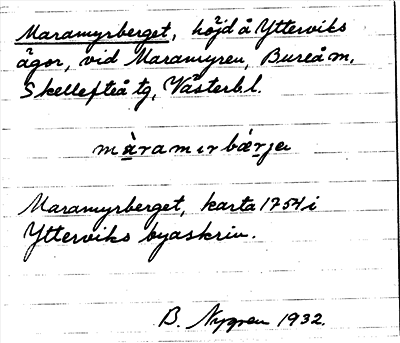 Maramyrberget, höjd å Ytterviks
ägor, vid Maramyren, Bureå m.
Skellefteå tg, Västerb.l.
màramırbærjeı
Maramyrberget, karta 1754 i
Ytterviks byaskrin.
B. Nygren 1932.